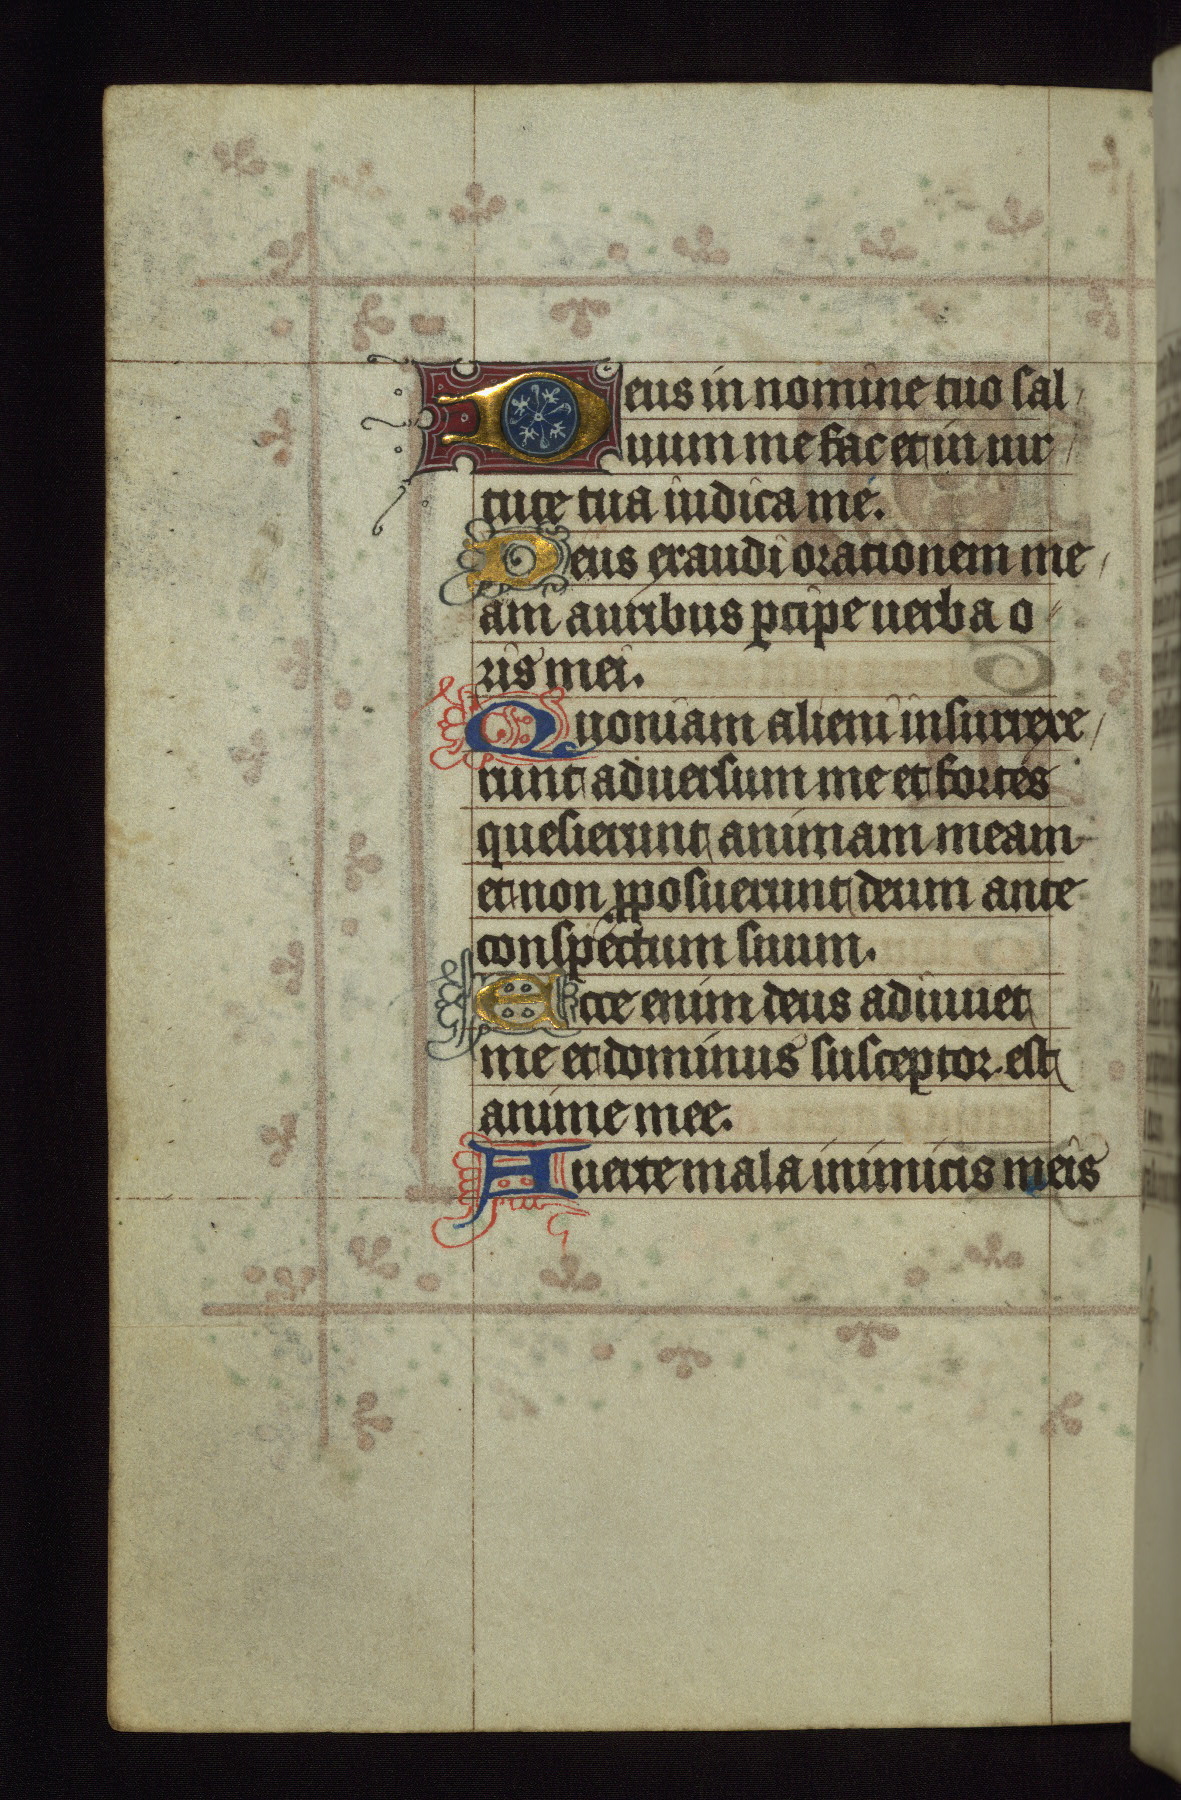 Deus in nomine tuo sal
uum me fac et in uir
tute tua iudica me.
Deus exaudi orationem me
am auribus pcipe uerba o
ris mei.
Quoniam alieni insurrexe
runt aduersum me et fortes
quesierunt animam meam
et non pposuerunt deum ante
conspectum suum.
Ecce enim deus adiuuet
me et dominus susceptor est
anime mee.
Auerte mala inimicis meis